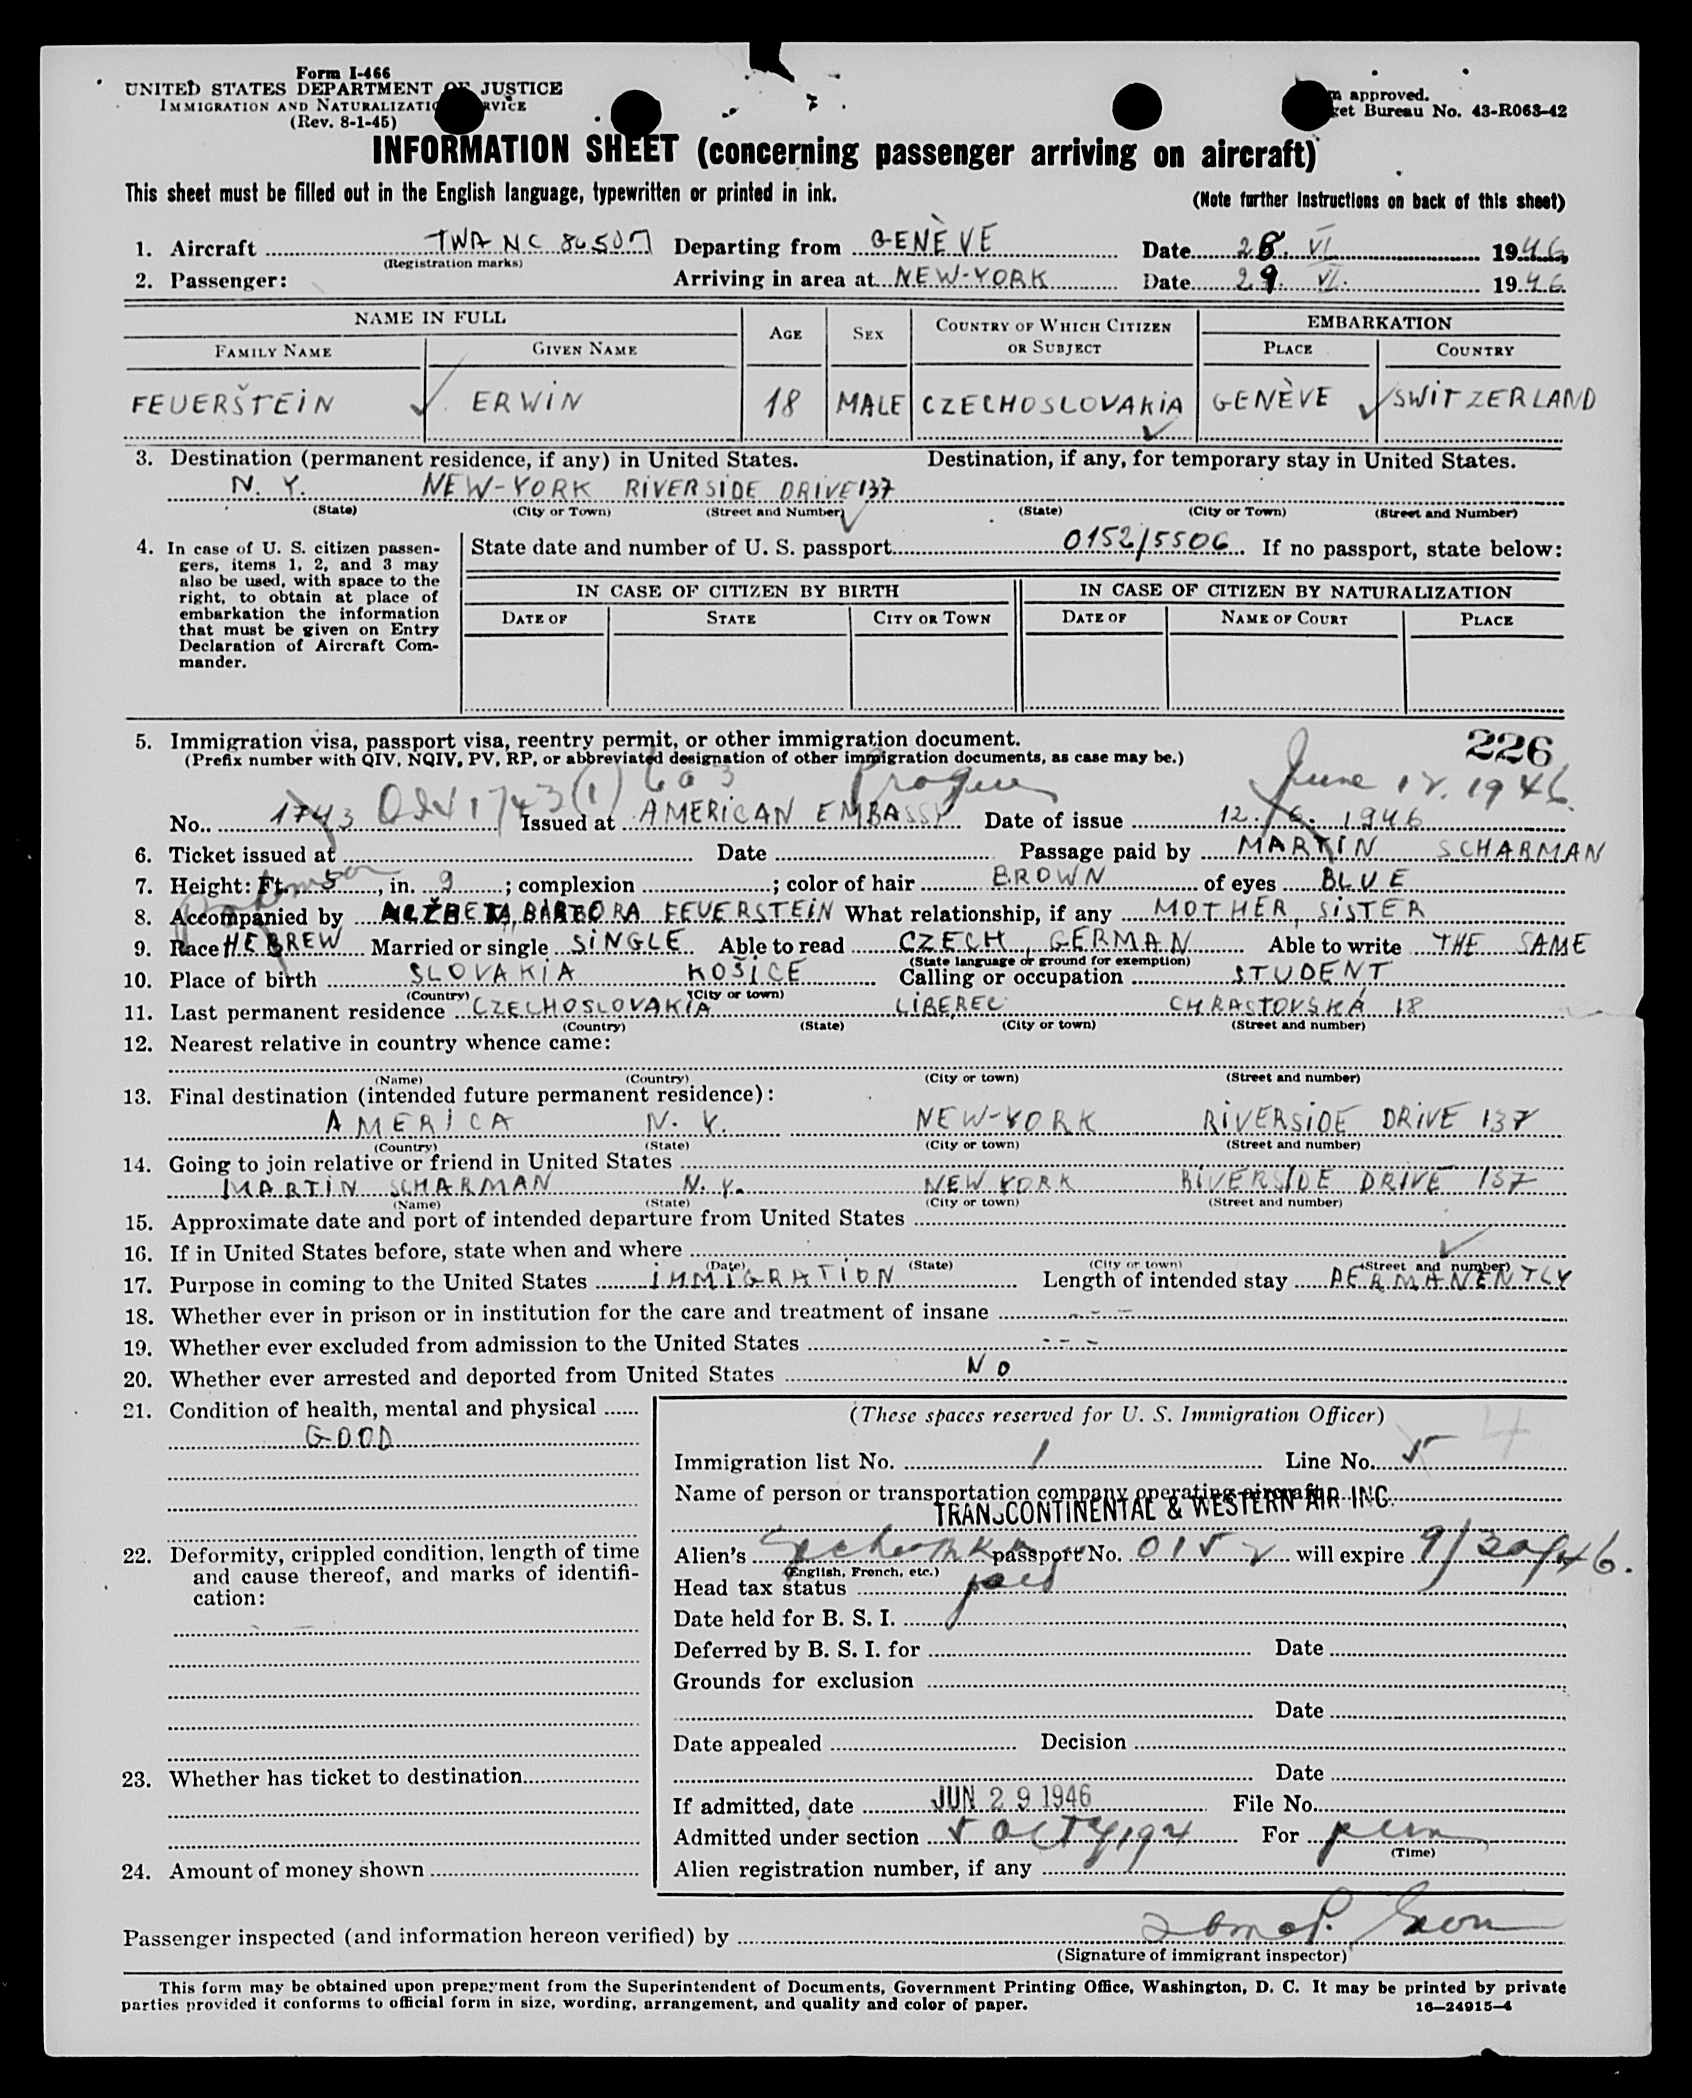 Form I-466
UNITED STATES DEPARTMENT OF JUSTICE
IMMIGRATION AND NATURALIZATION SERVICE
(Rev. 8-1-45)
approved.
Bureau No. 43-R063-42
INFORMATION SHEET (concerning passenger arriving on aircraft)
This sheet must be filled out in the English language, typewritten or printed in ink.
(Note further instructions on back of this sheet)
1. Aircraft TWA NC 86507 Departing from GENÈVE Date 28. VI. 1946
(Registration marks)
2. Passenger: Arriving in area at NEW-YORK Date 29. VI. 1946
NAME IN FULL AGE SEX COUNTRY OF WHICH CITIZEN OR SUBJECT EMBARKATION
FAMILY NAME GIVEN NAME PLACE COUNTRY
FEUERŠTEIN ERWIN 18 MALE CZECHOSLOVAKIA GENÈVE SWITZERLAND
3. Destination (permanent residence, if any) in United States. Destination, if any, for temporary stay in United States.
N. Y. NEW-YORK RIVERSIDE DRIVE 137
(State) (City or Town) (Street and Number) (State) (City or Town) (Street and Number)
4. In case of U. S. citizen passen-
gers, items 1, 2, and 3 may
also be used, with space to the
right, to obtain at place of
embarkation the information
that must be given on Entry
Declaration of Aircraft Com-
mander.
State date and number of U. S. passport 0152/5506 If no passport, state below:
IN CASE OF CITIZEN BY BIRTH IN CASE OF CITIZEN BY NATURALIZATION
DATE OF STATE CITY OR TOWN DATE OF NAME OF COURT PLACE
226
5. Immigration visa, passport visa, reentry permit, or other immigration document.
(Prefix number with QIV, NQIV, PV, RP, or abbreviated designation of other immigration documents, as case may be.)
QIV 1743 (1) 6a3 Prague June 12. 1946.
No. 1743 Issued at AMERICAN EMBASSY Date of issue 12. 6. 1946
6. Ticket issued at Date Passage paid by MARTIN SCHARMAN
7. Height: Ft. 5, in. 9; complexion ; color of hair BROWN of eyes BLUE
8. Accompanied by ALŽBETA, BARBORA FEUERSTEIN What relationship, if any MOTHER, SISTER
9. Race HEBREW Married or single SINGLE Able to read CZECH, GERMAN Able to write THE SAME
(State language or ground for exemption)
10. Place of birth SLOVAKIA KOŠICE Calling or occupation STUDENT
(Country) (City or town)
11. Last permanent residence CZECHOSLOVAKIA LIBEREC CHRASTOVSKÁ 18
(Country) (State) (City or town) (Street and number)
12. Nearest relative in country whence came:
(Name) (Country) (City or town) (Street and number)
13. Final destination (intended future permanent residence):
AMERICA N. Y. NEW-YORK RIVERSIDE DRIVE 137
(Country) (State) (City or town) (Street and number)
14. Going to join relative or friend in United States
MARTIN SCHARMAN N. Y. NEW YORK RIVERSIDE DRIVE 137
(Name) (State) (City or town) (Street and number)
15. Approximate date and port of intended departure from United States
16. If in United States before, state when and where
(Date) (State) (City or town) (Street and number)
17. Purpose in coming to the United States IMMIGRATION Length of intended stay PERMANENTLY
18. Whether ever in prison or in institution for the care and treatment of insane - - -
19. Whether ever excluded from admission to the United States - - -
20. Whether ever arrested and deported from United States NO
21. Condition of health, mental and physical
GOOD
22. Deformity, crippled condition, length of time
and cause thereof, and marks of identifi-
cation:
23. Whether has ticket to destination
24. Amount of money shown
(These spaces reserved for U. S. Immigration Officer)
Immigration list No. 1 Line No. 5 4
Name of person or transportation company operating aircraft
TRANSCONTINENTAL & WESTERN AIR INC.
Alien's passport No. 0152 will expire 9/30/46.
(English, French, etc.)
Head tax status paid
Date held for B. S. I.
Deferred by B. S. I. for Date
Grounds for exclusion
Date
Date appealed Decision
Date
If admitted, date JUN 29 1946 File No.
Admitted under section 5 Act 1924 For perm
(Time)
Alien registration number, if any
Passenger inspected (and information hereon verified) by
(Signature of immigrant inspector)
This form may be obtained upon prepayment from the Superintendent of Documents, Government Printing Office, Washington, D. C. It may be printed by private
parties provided it conforms to official form in size, wording, arrangement, and quality and color of paper. 16—24915-4